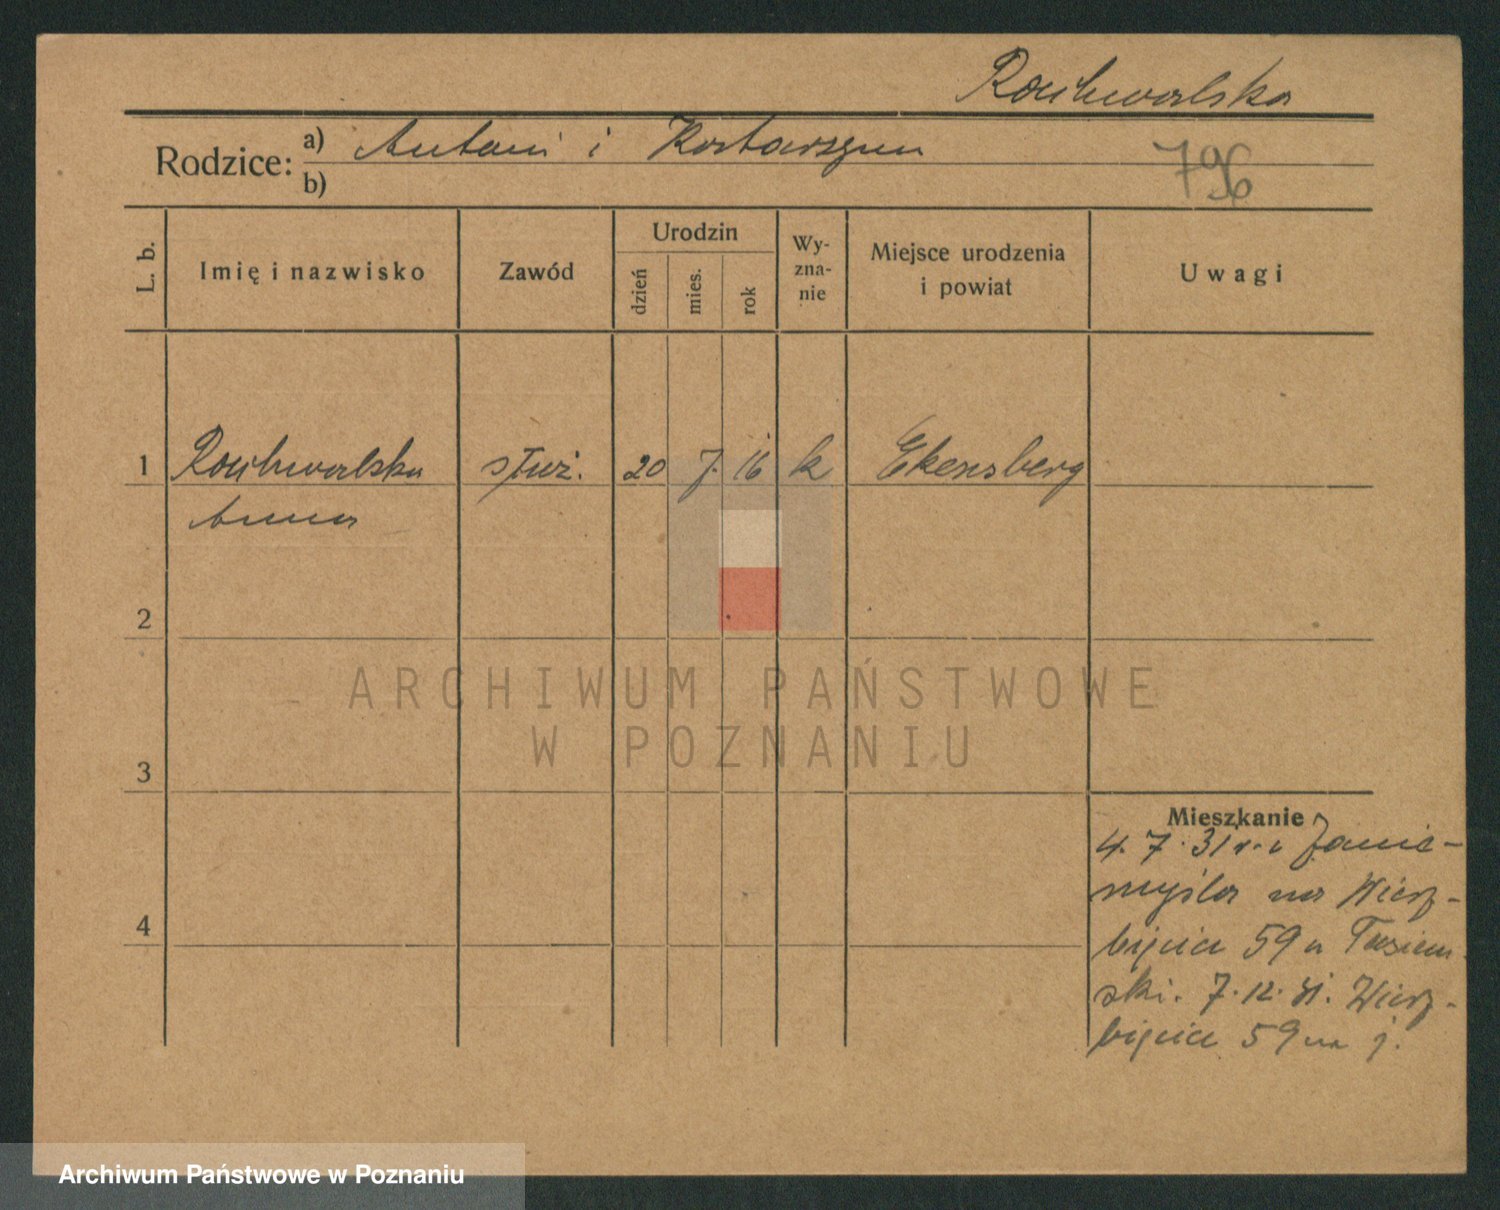 Rouhwalska
Rodzice:
a) Antoni i Katarzyna
b)
796
L. b.
Imię i nazwisko
Zawód
Urodzin
dzień
mies.
rok
Wy-
zna-
nie
Miejsce urodzenia
i powiat
Uwagi
1 Rouhwalska służ. 20 7. 16 k Ekensberg
Anna
2
3
4
Mieszkanie
4. 7. 31 r. z Zanie-
myśla na Wierz-
bięcice 59 u
ski. 7. 12. 31. Wierz-
bięcice 59 j.
ARCHIWUM PAŃSTWOWE
W POZNANIU
Archiwum Państwowe w Poznaniu